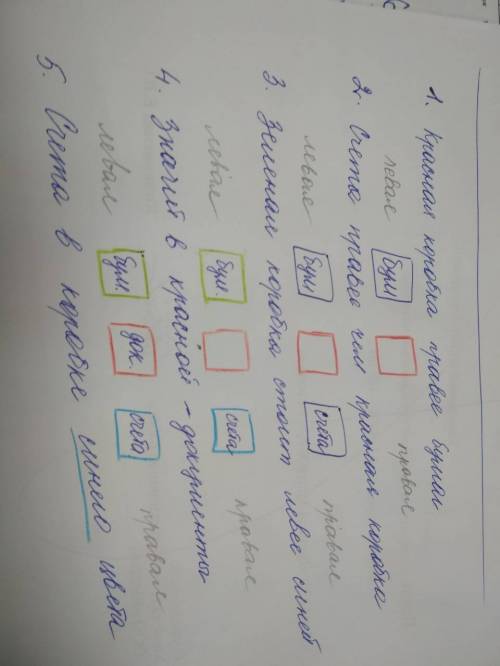 1. Красная коробка правее бумаг
левая бум правая
2. Счета правее чем красная коробка
левая бум счета правая
3. Зеленая коробка стоит левее синей
левая бум счета правая
4. Значит в красной - документы
левая бум док. счета правая
5. Счета в коробке синего цвета